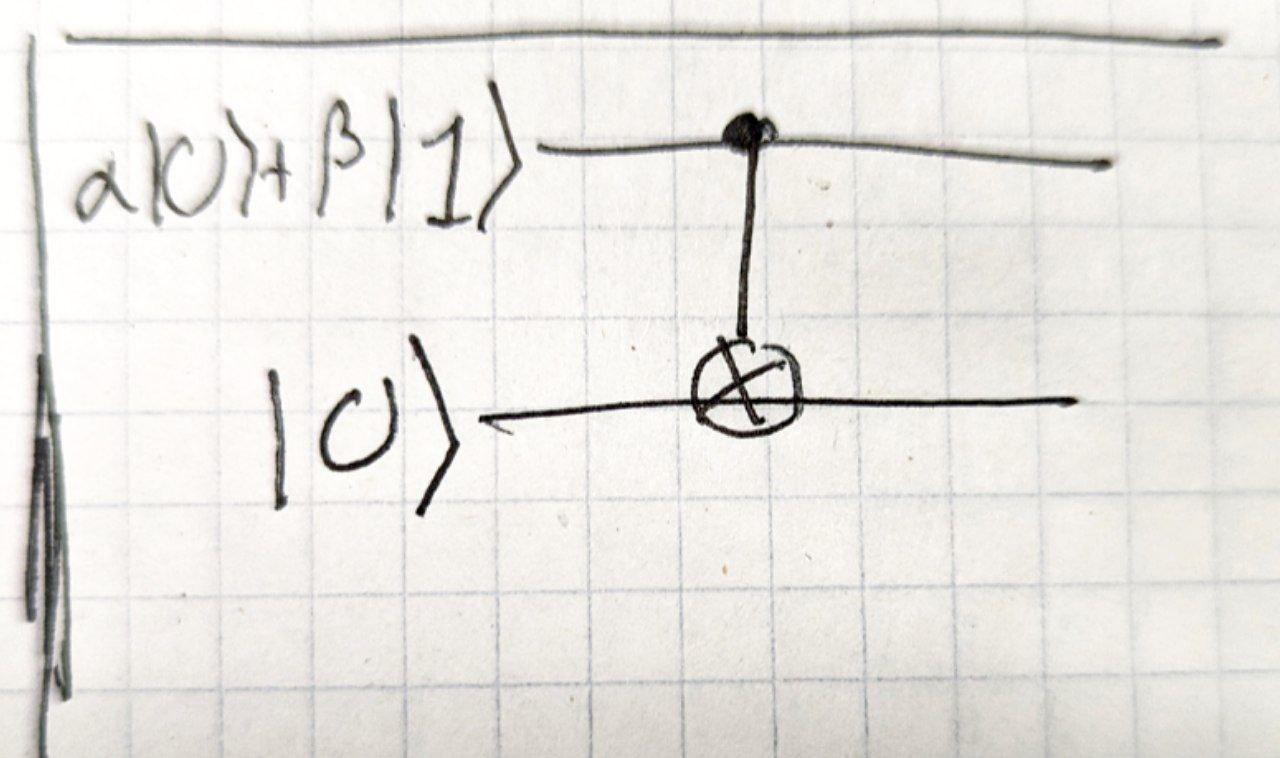 α|0⟩+β|1⟩
|0⟩